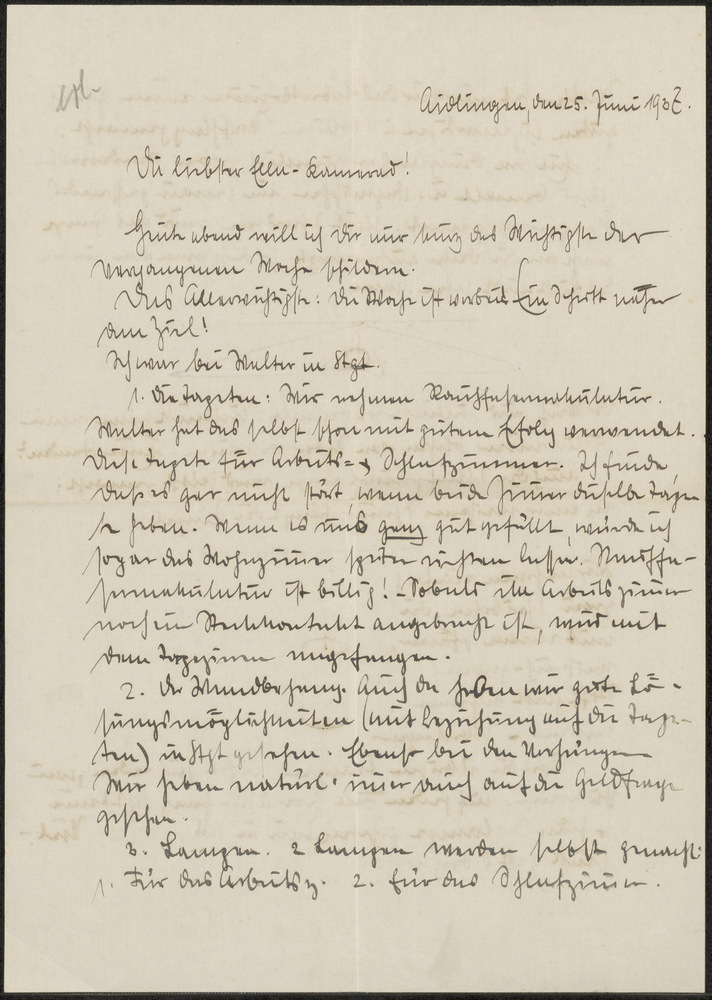 erl.
Aidlingen, den 25. Juni 1937.
Du liebster Ellen-Kamerad!
Heute abend will ich Dir nur kurz das Wichtigste der
vergangenen Woche schildern.
Das Allerwichtigste: Die Woche ist vorbei! Ein Schritt näher
am Ziel!
Ich war bei Walter in Stgt.
1. Die Tapeten: Wir nehmen Rauhfasermakulatur.
Walter hat das selbst schon mit gutem Erfolg verwendet.
Diese Tapete für Arbeits= u. Schlafzimmer. Ich finde,
daß es gar nicht stört, wenn beide Zimmer dieselbe Tape-
te haben. Wenn es uns ganz gut gefällt, würde ich
sogar das Wohnzimmer später richten lassen. Rauhfa-
sermakulatur ist billig! - Sobald im Arbeitszimmer
noch ein Steckkontakt angebracht ist, wird mit
dem Tapezieren angefangen.
2. Der Wandbehang. Auch da haben wir gute Lö-
sungsmöglichkeiten (mit Beziehung auf die Tape-
ten) in Stgt gesehen. Ebenso bei den Vorhängen
Wir haben natürl. immer auch auf die Geldfrage
gesehen.
3. Lampen. 2 Lampen werden selbst gemacht:
1. Für das Arbeitsz. 2. für das Schlafzimmer.